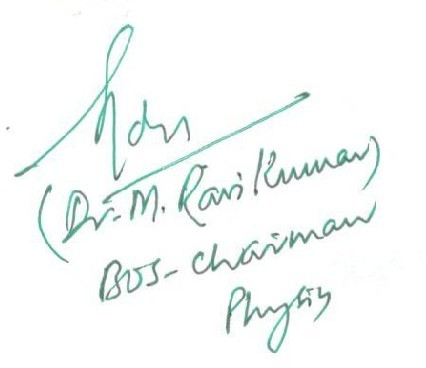 (Dr. M. Ravi Kumar)
BOS - Chairman
Physics